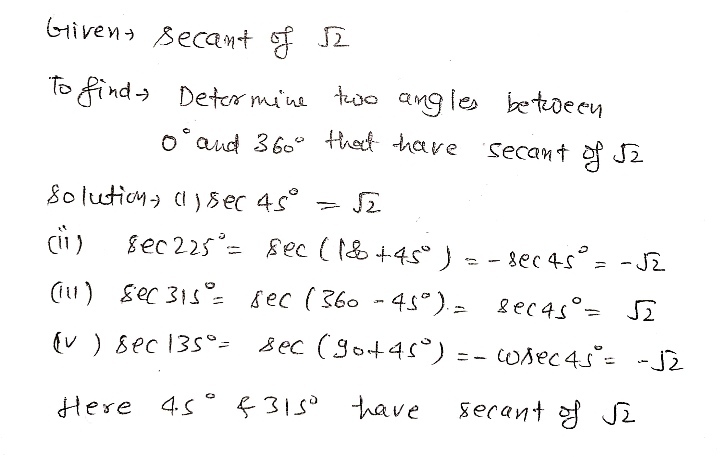 Given → Secant of √2
To find → Determine two angles between
0° and 360° that have secant of √2
Solution → (i) sec 45° = √2
(ii) sec 225° = sec (180 + 45°) = - sec 45° = - √2
(iii) sec 315° = sec (360 - 45°) = sec 45° = √2
(v) sec 135° = sec (90 + 45°) = - cosec 45° = - √2
Here 45° & 315° have secant of √2